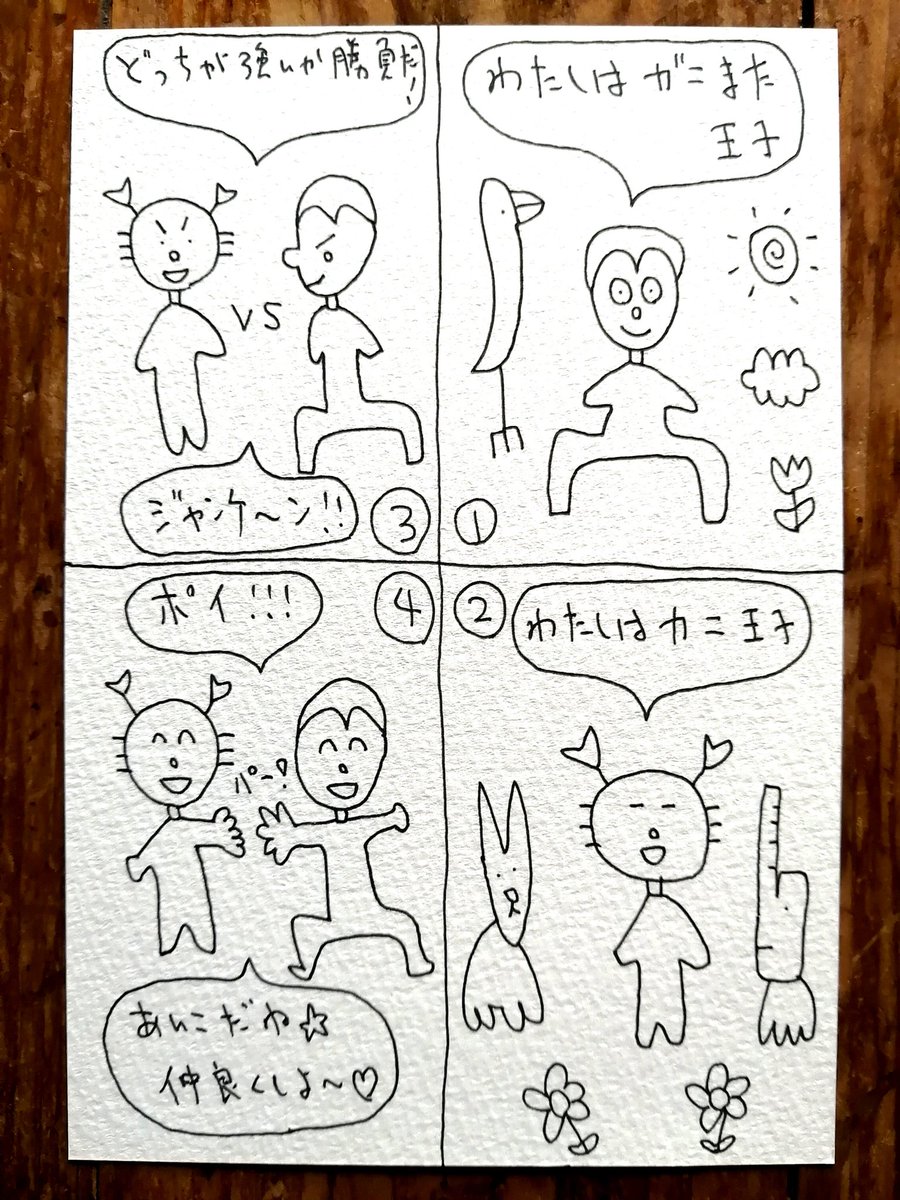 ①
わたしはガニまた
王子
②
わたしはカニ王子
③
どっちが強いか勝負だ!!
VS
ジャンケ〜ン!!
④
ポイ!!!
パー!
あいこだね☆
仲良くしよ〜♡